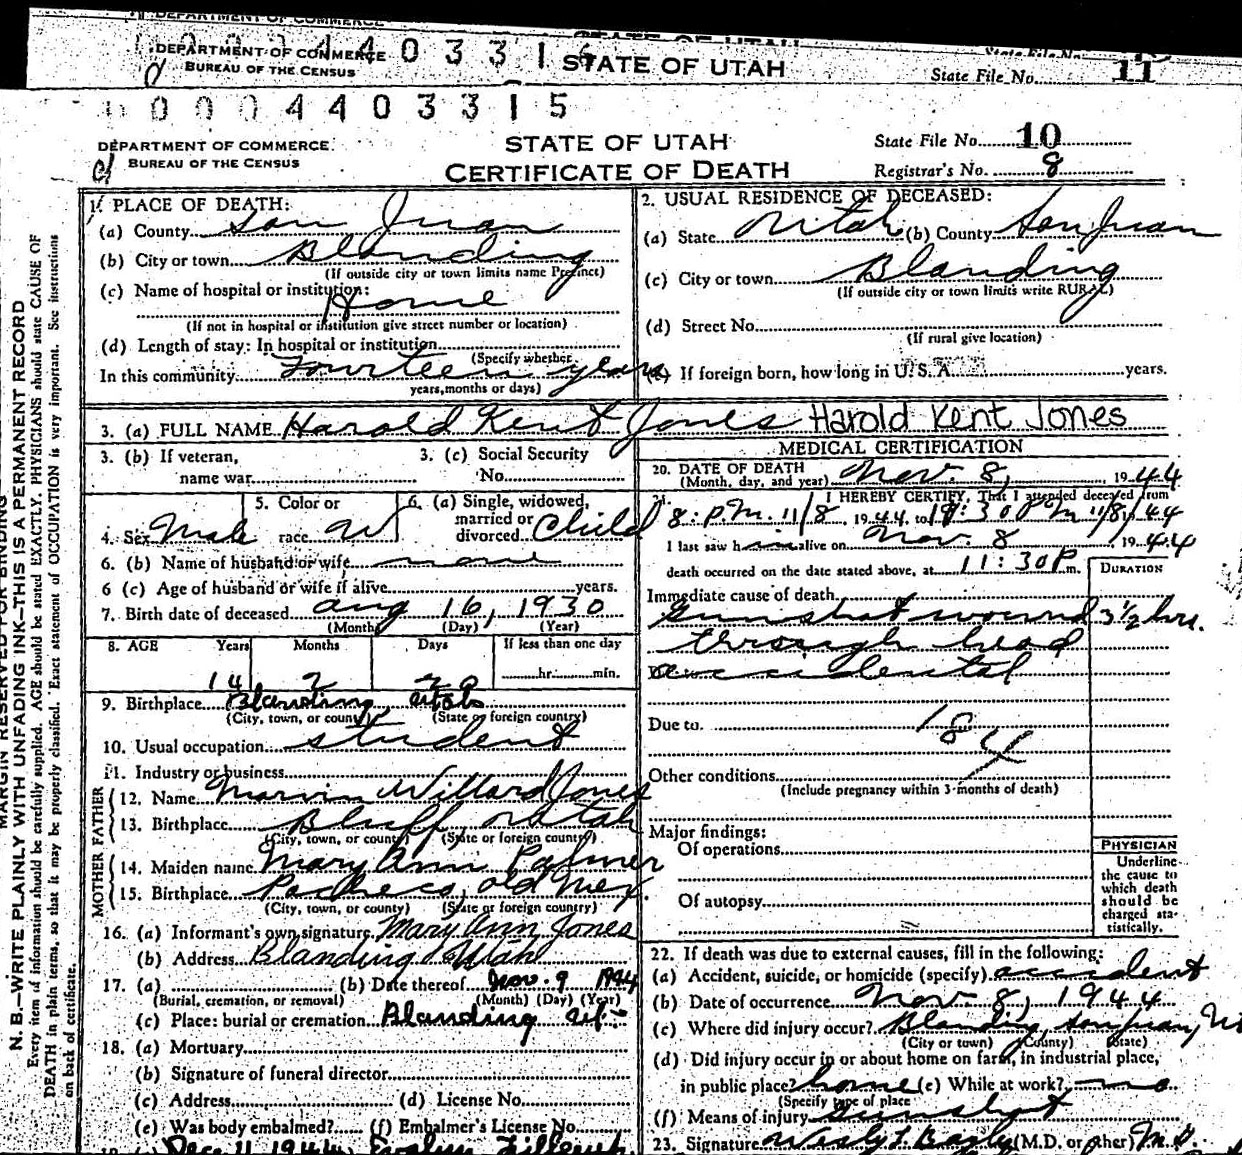 DEPARTMENT OF COMMERCE
BUREAU OF THE CENSUS
STATE OF UTAH
State File No. 11
0 0 0 4 4 0 3 3 1 5
DEPARTMENT OF COMMERCE
BUREAU OF THE CENSUS
STATE OF UTAH
CERTIFICATE OF DEATH
State File No. 10
Registrar's No. 8
MARGIN RESERVED FOR BINDING
N. B.—WRITE PLAINLY WITH UNFADING INK—THIS IS A PERMANENT RECORD
Every item of information should be carefully supplied. AGE should be stated EXACTLY. PHYSICIANS should state CAUSE OF
DEATH in plain terms, so that it may be properly classified. Exact statement of OCCUPATION is very important. See instructions
on back of certificate.
1. PLACE OF DEATH:
(a) County San Juan
(b) City or town Blanding
(If outside city or town limits name Precinct)
(c) Name of hospital or institution:
Home
(If not in hospital or institution give street number or location)
(d) Length of stay: In hospital or institution
(Specify whether
In this community fourteen years
years, months or days)
2. USUAL RESIDENCE OF DECEASED:
(a) State Utah (b) County San Juan
(c) City or town Blanding
(If outside city or town limits write RURAL)
(d) Street No.
(If rural give location)
(e) If foreign born, how long in U. S. A. years.
3. (a) FULL NAME Harold Kent Jones Harold Kent Jones
3. (b) If veteran,
name war
3. (c) Social Security
No.
4. Sex Male
5. Color or
race W
6. (a) Single, widowed,
married or
divorced Child
6. (b) Name of husband or wife none
6 (c) Age of husband or wife if alive years.
7. Birth date of deceased Aug 16, 1930
(Month) (Day) (Year)
8. AGE Years Months Days If less than one day
14 2 hr. min.
9. Birthplace Blanding, Utah
(City, town, or county) (State or foreign country)
10. Usual occupation student
11. Industry or business
FATHER
12. Name Marvin Willard Jones
13. Birthplace Bluff, Utah
(City, town, or county) (State or foreign country)
MOTHER
14. Maiden name Mary Ann Palmer
15. Birthplace Pacheco, old Mex.
(City, town, or county) (State or foreign country)
16. (a) Informant's own signature Mary Ann Jones
(b) Address Blanding Utah
17. (a) (b) Date thereof Nov. 9 1944
(Burial, cremation, or removal) (Month) (Day) (Year)
(c) Place: burial or cremation Blanding Ut.
18. (a) Mortuary
(b) Signature of funeral director
(c) Address (d) License No.
(e) Was body embalmed? (f) Embalmer's License No.
Dec 11 1944 Evelyn
MEDICAL CERTIFICATION
20. DATE OF DEATH
(Month, day, and year) Nov. 8, 1944
21. I HEREBY CERTIFY, That I attended deceased from
8: P.M. 11/8, 1944, to 11:30 PM 11/8, 1944
I last saw him alive on Nov. 8, 1944
death occurred on the date stated above, at 11:30 P m.
DURATION
Immediate cause of death
Gunshot wound 3½ hrs.
through head
accidental
Due to
184
Other conditions
(Include pregnancy within 3 months of death)
Major findings:
Of operations
Of autopsy
PHYSICIAN
Underline
the cause to
which death
should be
charged sta-
tistically.
22. If death was due to external causes, fill in the following:
(a) Accident, suicide, or homicide (specify) accident
(b) Date of occurrence Nov 8, 1944
(c) Where did injury occur? Blanding, San Juan, Ut
(City or town) (County) (State)
(d) Did injury occur in or about home on farm, in industrial place,
in public place? home (e) While at work? no
(Specify type of place
(f) Means of injury gunshot
23. Signature (M.D. or other) M.D.